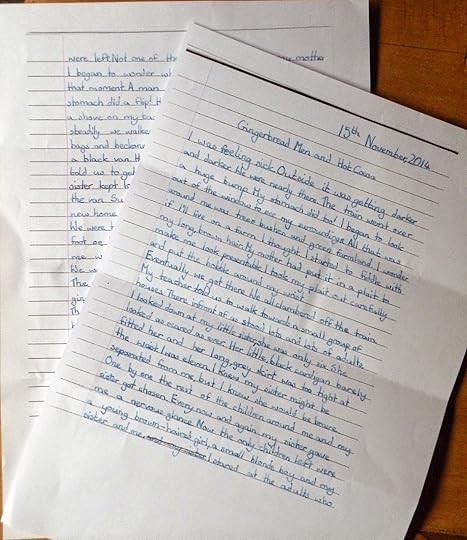 15th November 2014
Gingerbread Men and Hot Cocoa
I was feeling sick. Outside it was getting darker
and darker. We were nearly there. The train went over
a huge bump. My stomach did too! I began to look
out of the window to see my surroundings. All that was
around me was trees bushes and goopy farmland. I wonder
if I'll live on a farm I thought. I started to fiddle with
my long brown hair. My mother had put it in a plait to
make me look presentable. I took my plait out carefully
and put the bobble around my wrist.
Eventually we got there. We all clambered off the train.
My teacher told us to walk toward a small group of
houses. There infront of us stood lots and lots of adults.
I looked down at my little sister, she was only six. She
looked as scared as ever. Her little black cardigan barely
fitted her and her long, grey skirt was too tight at
the waist. I was eleven. I knew my sister might be
separated from me, but I knew she would be brave.
One by one the rest of the children around me and my
sister got chosen. Every now and again my sister gave
me a nervous glance. Now the only children left were
a young brown-haired girl, a small blonde boy and my
sister and me. and my sister I stared at the adults who
were left. Not one of the mother
I began to wonder
that moment. A man
stomach did a flip!
a shove on my
steadily we walke
bags and beckon
a black van.
told us to get
sister kept
the van.
new home
We were
foot on
me
We w
The
gin
Th